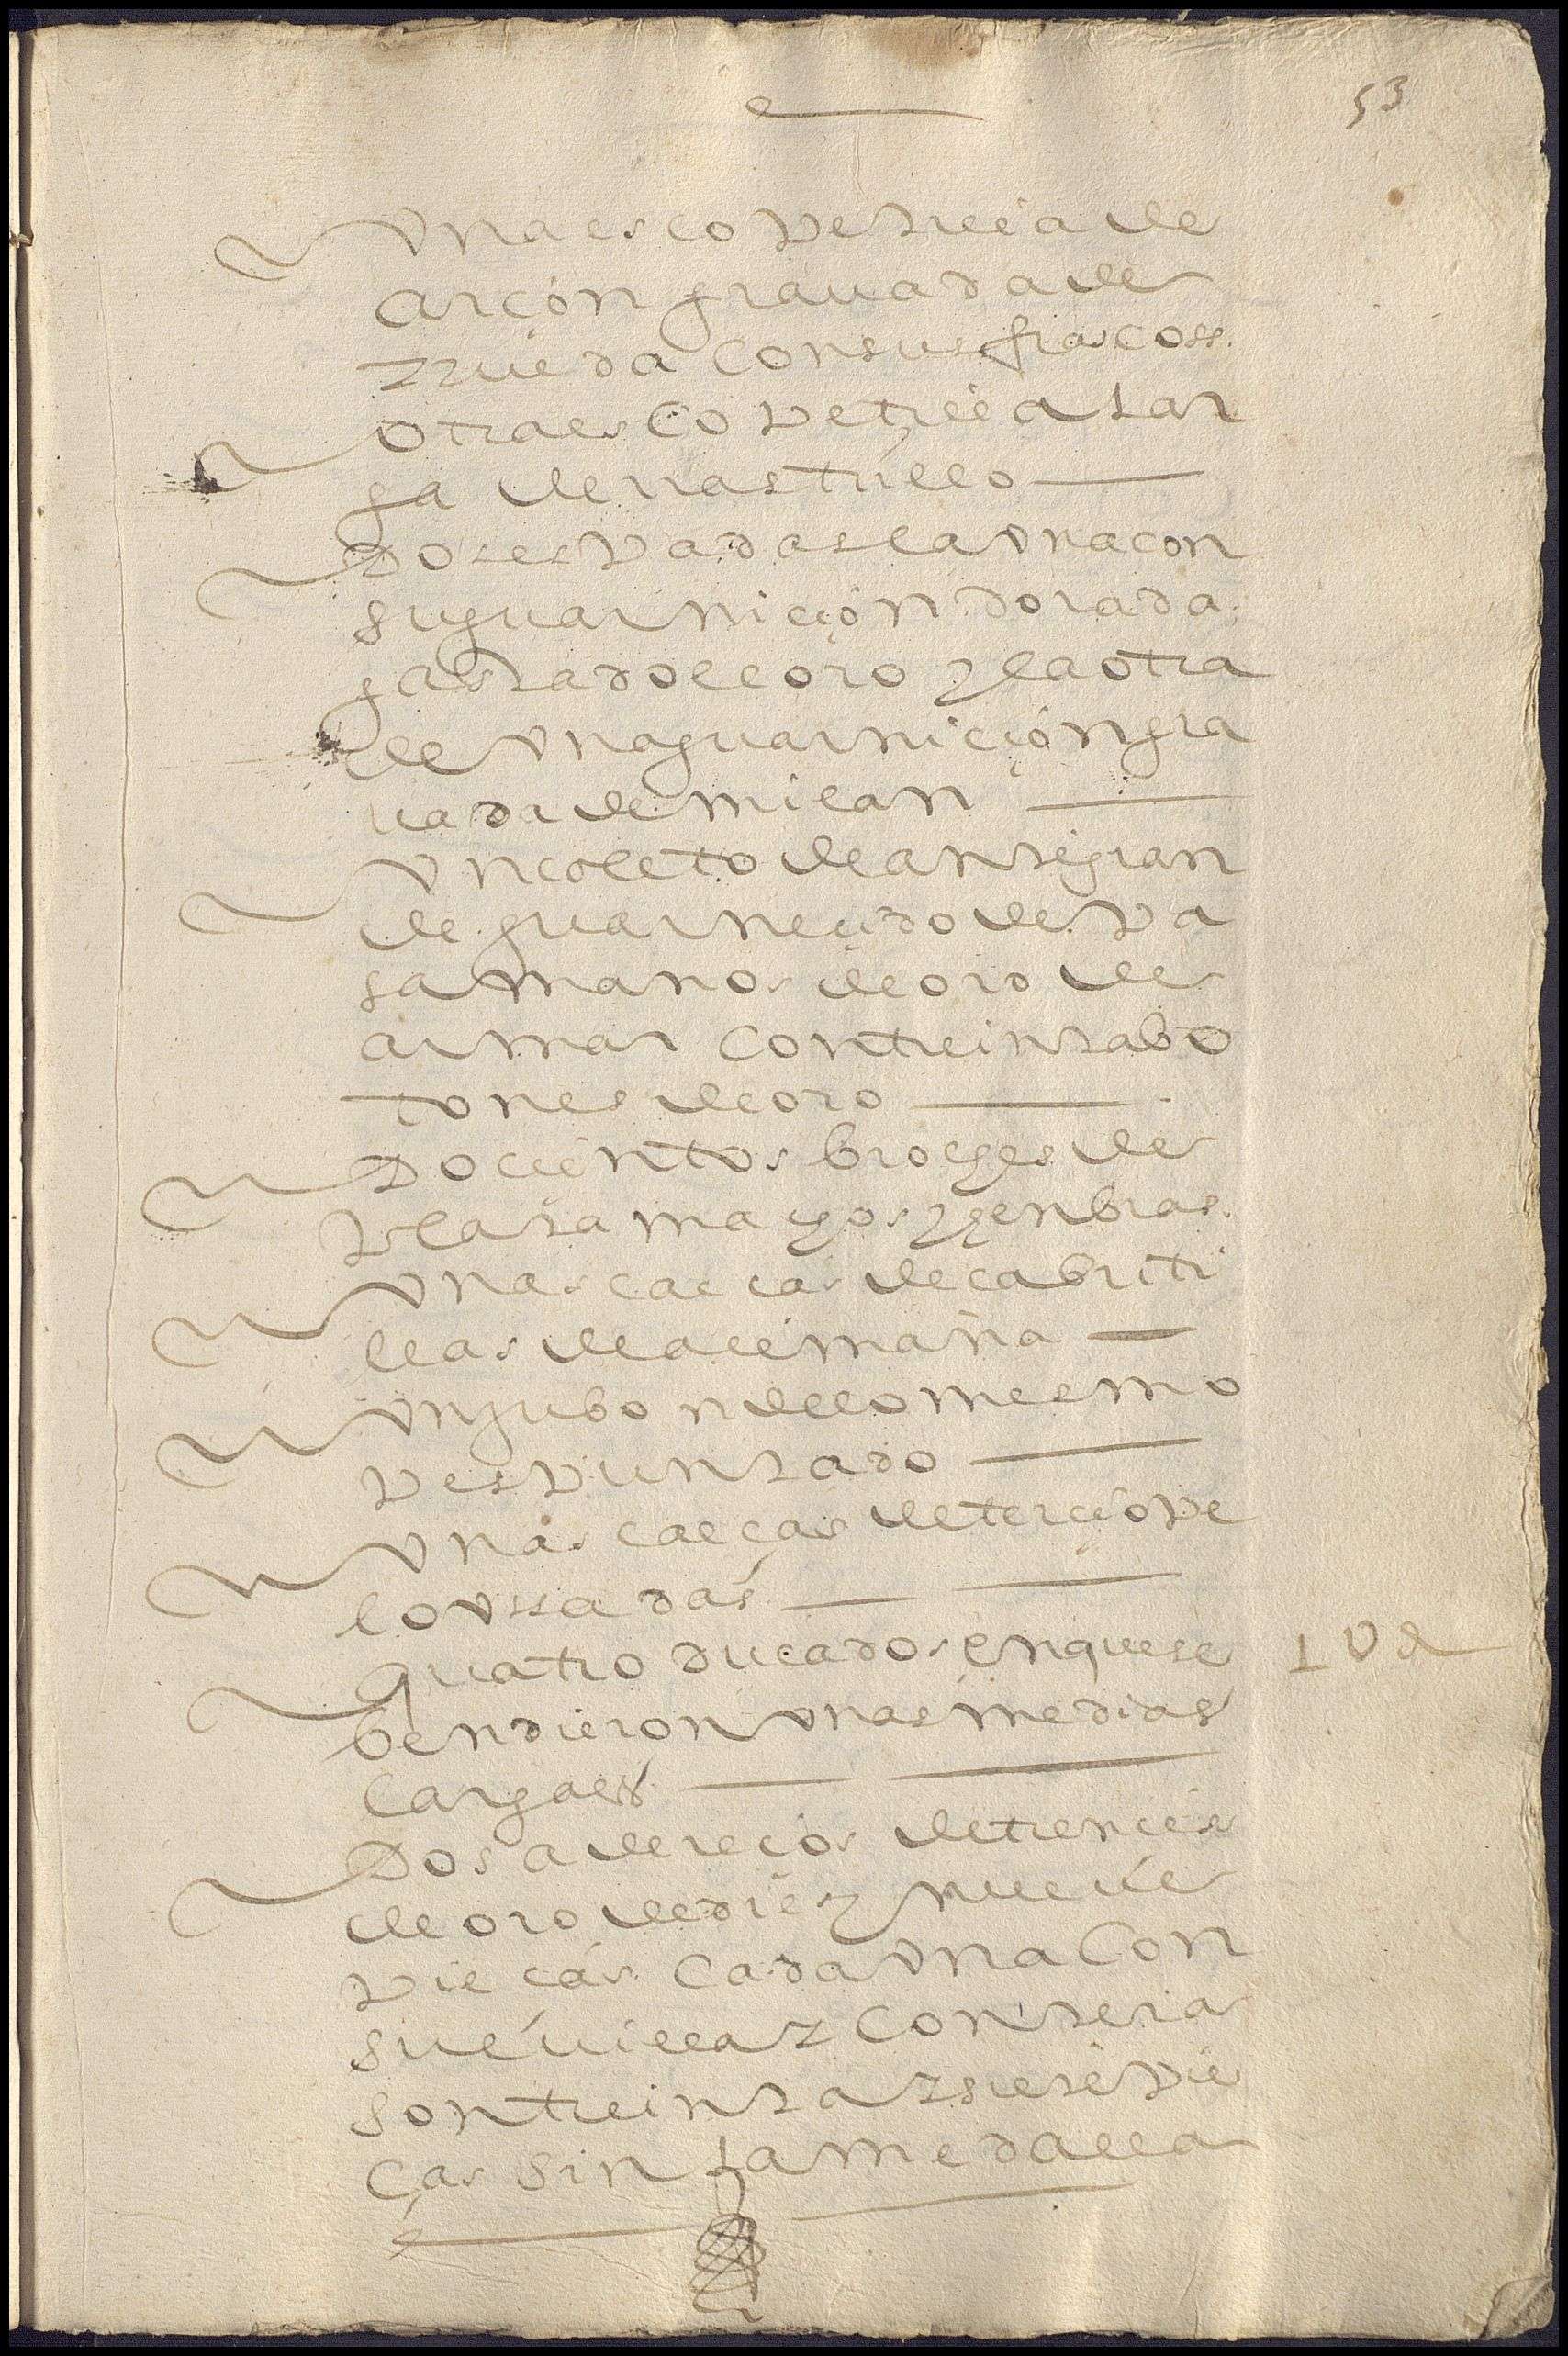 53
Una escopetilla de
arcon grauada de
rrueda con sus frascoss.
otra escopetilla lar
ga de rrastrillo
Dos espadas la una con
su guarnicion dorada
gastado el oro y la otra
de una guarniçion gra
uada de milan
Un coleto de ante gran
de guarnecido de pa
samanos de oro de
armar con treinta bo
tones de oro
Docientos broches de
plata machos y henbras
Unas calcas de cabriti
llas de alemania
Un jubon de lo mesmo
pespuntado
Unas calças de terçiope
lo ussadas
Quatro ducados en que se
bendieron unas medias
cargaes
Dos adereços de trences
de oro de diez y nueue
pieças cada una con
su euilla y contera
son treinta y siete pie
ças sin la medalla